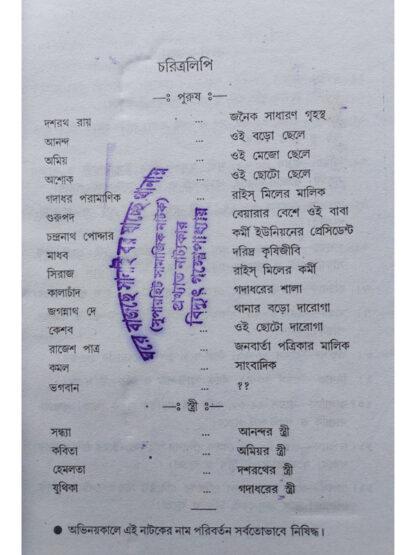 চরিত্রলিপি
—ঃ পুরুষ ঃ—
দশরথ রায় ... জনৈক সাধারণ গৃহস্থ
আনন্দ ওই বড়ো ছেলে
অমিয় ওই মেজো ছেলে
অশোক ওই ছোটো ছেলে
গদাধর পরামাণিক রাইস্ মিলের মালিক
গুরুপদ বেয়ারার বেশে ওই বাবা
চন্দ্রনাথ পোদ্দার কর্মী ইউনিয়নের প্রেসিডেন্ট
মাধব দরিদ্র কৃষিজীবি
সিরাজ রাইস্ মিলের কর্মী
কালাচাঁদ ... গদাধরের শালা
জগন্নাথ দে ... থানার বড়ো দারোগা
কেশব ... ওই ছোটো দারোগা
রাজেশ পাত্র ... জনবার্তা পত্রিকার মালিক
কমল ... সাংবাদিক
ভগবান ... ??
—ঃ স্ত্রী ঃ—
সন্ধ্যা ... আনন্দর স্ত্রী
কবিতা ... অমিয়র স্ত্রী
হেমলতা ... দশরথের স্ত্রী
যূথিকা ... গদাধরের স্ত্রী
● অভিনয়কালে এই নাটকের নাম পরিবর্তন সর্বতোভাবে নিষিদ্ধ।
ঘরে বাজছে সানাই বর যাচ্ছে থানায়
(সুপারহিট সামাজিক নাটক)
প্রখ্যাত নাট্যকার
বিদ্যুৎ গঙ্গোপাধ্যায়